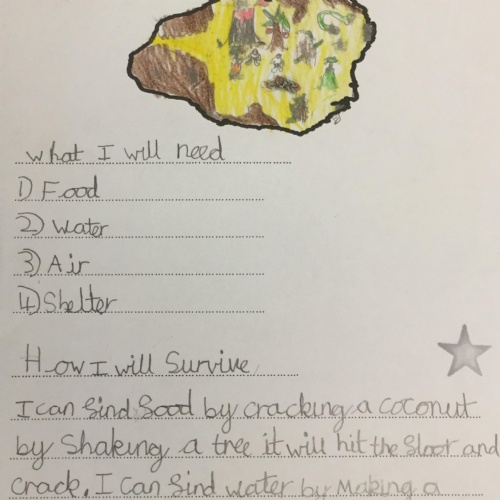 what I will need
1) Food
2) Water
3) Air
4) Shelter
How I will Survive
I can find food by cracking a coconut
by Shaking a tree it will hit the floor and
crack. I Can find water by Making a